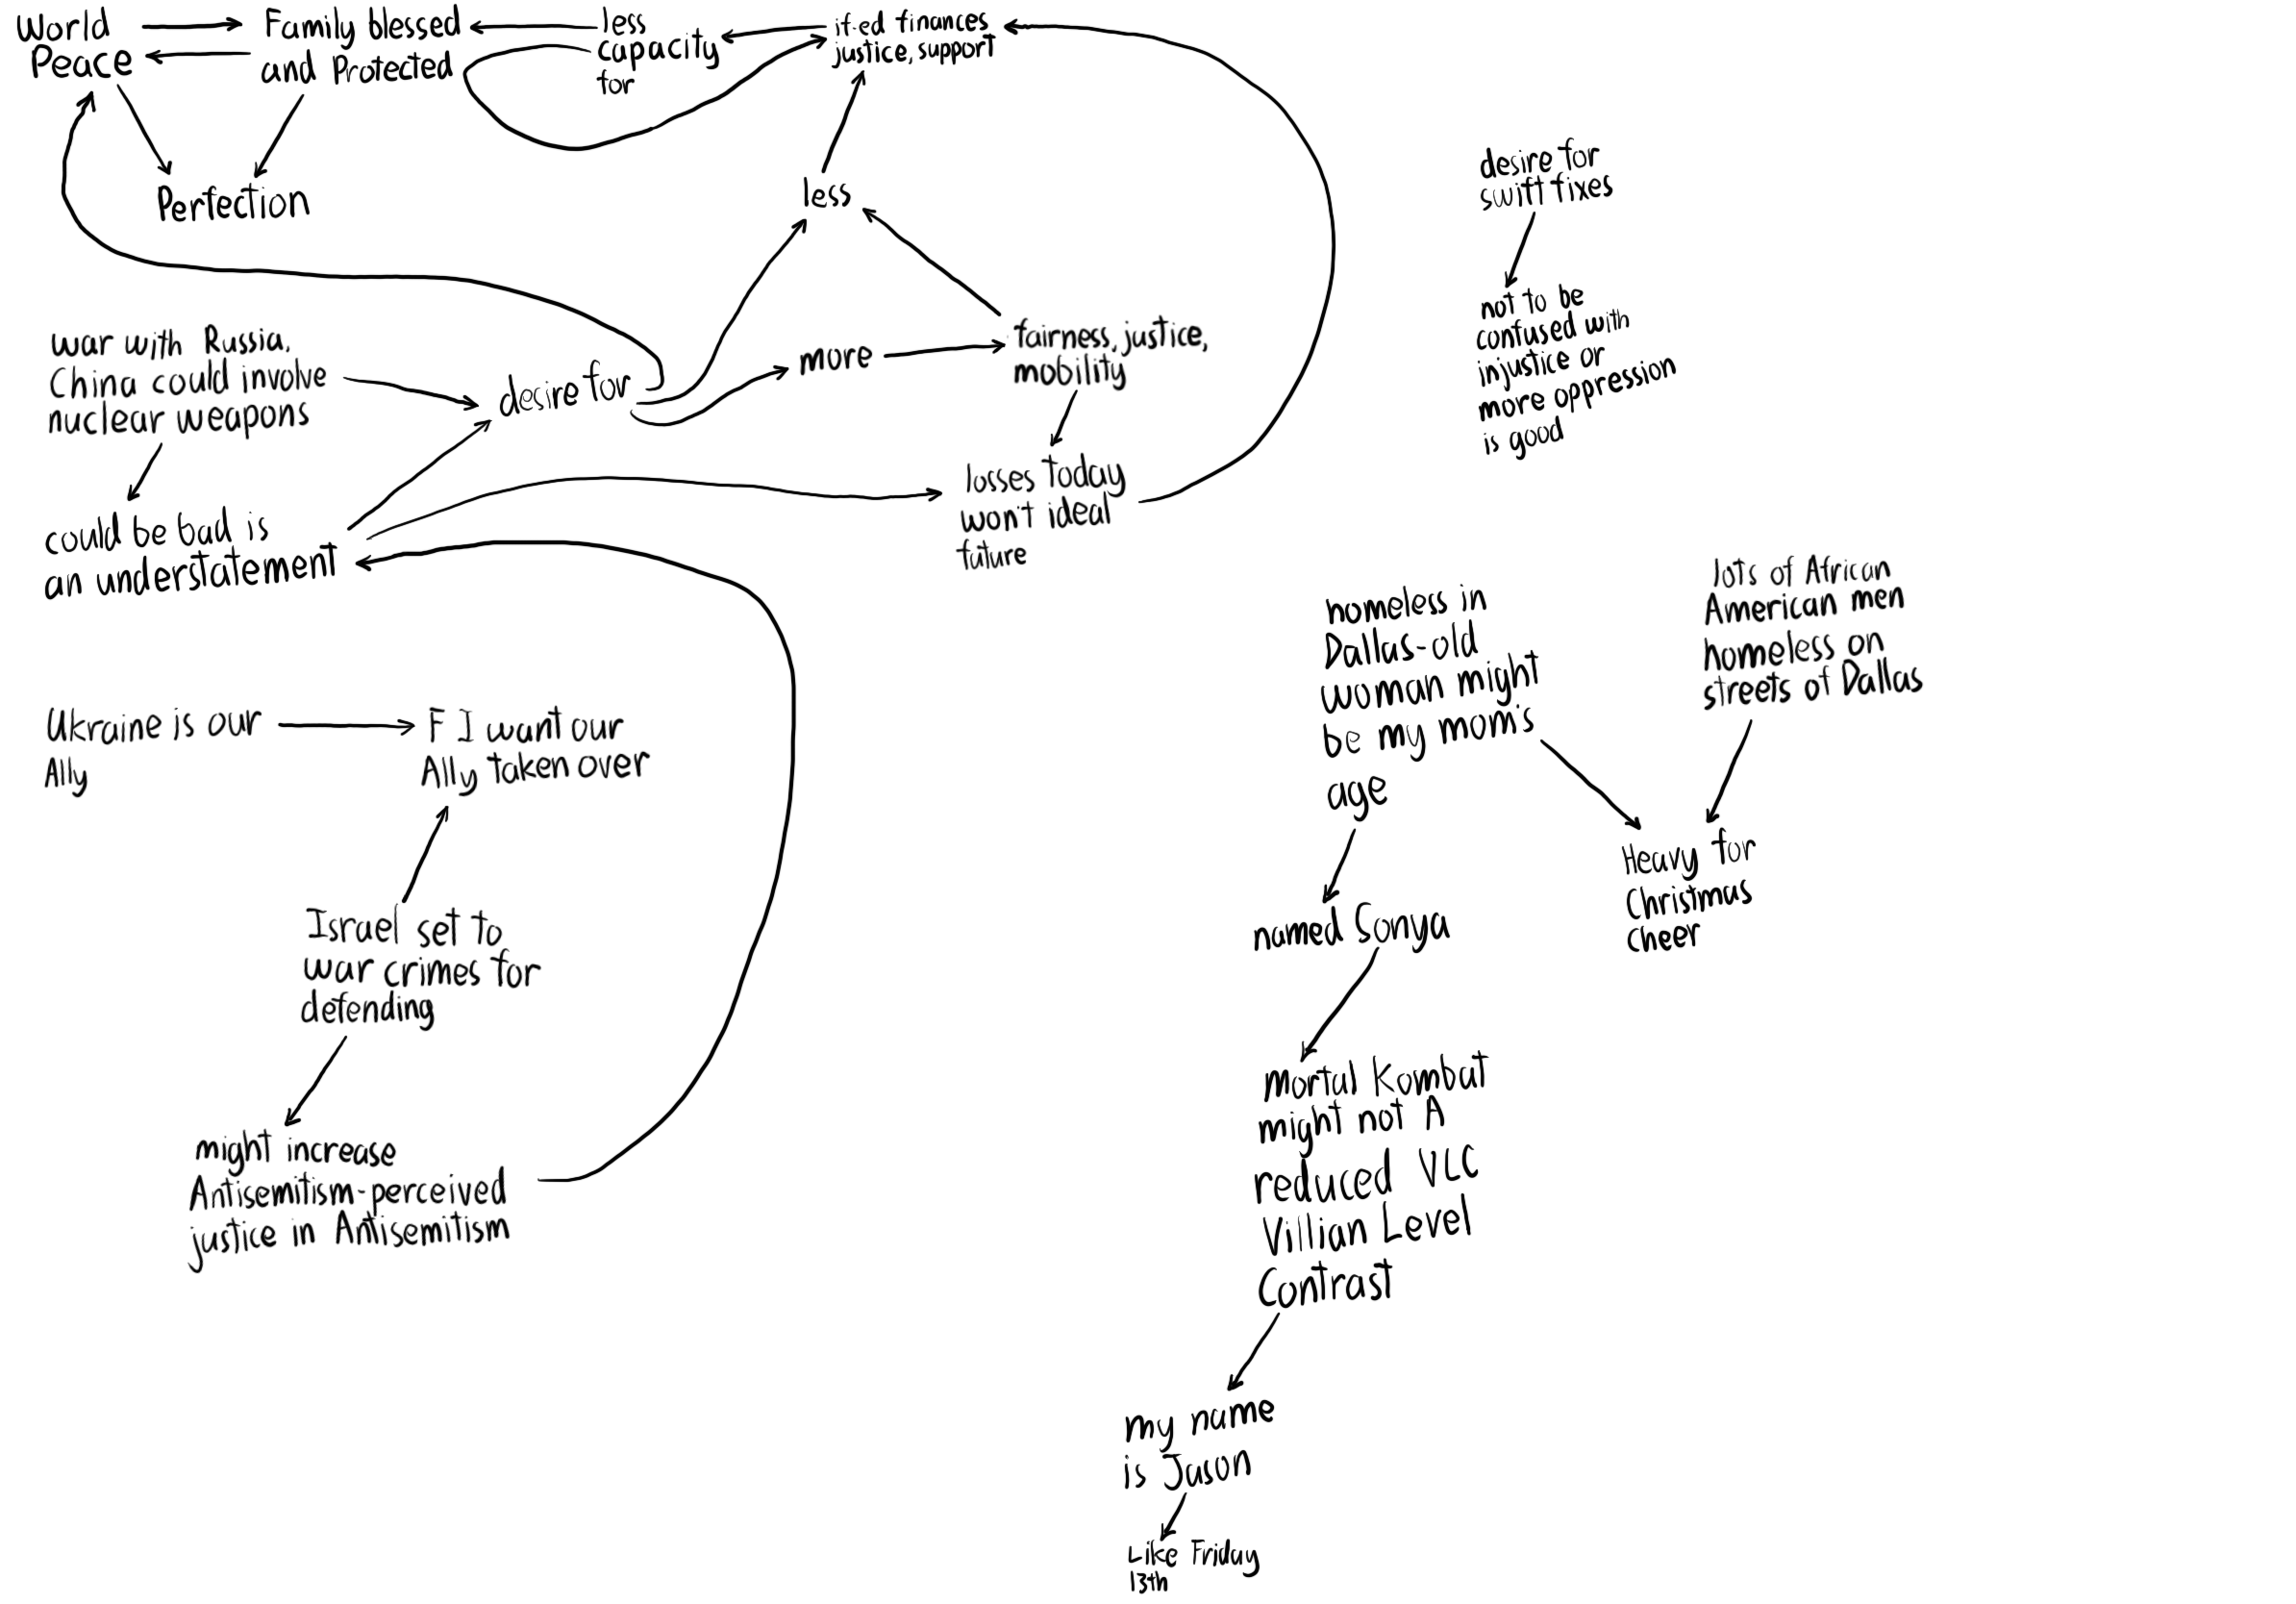 World
Peace
Family blessed
and Protected
less
capacity
for
if-ed finances
justice, support
Perfection
less
desire for
swift fixes
not to be
confused with
injustice or
more oppression
is good
war with Russia,
China could involve
nuclear weapons
desire for
more
fairness, justice,
mobility
losses today
won't ideal
future
could be bad is
an understatement
homeless in
Dallas-old
woman might
be my mom's
age
lots of African
American men
homeless on
streets of Dallas
Ukraine is our
Ally
F I want our
Ally taken over
Heavy for
Christmas
cheer
Israel set to
war crimes for
defending
named Sonya
might increase
Antisemitism-perceived
justice in Antisemitism
Mortal Kombat
might not A
reduced VLC
Villian Level
Contrast
my name
is Jason
Like Friday
13th